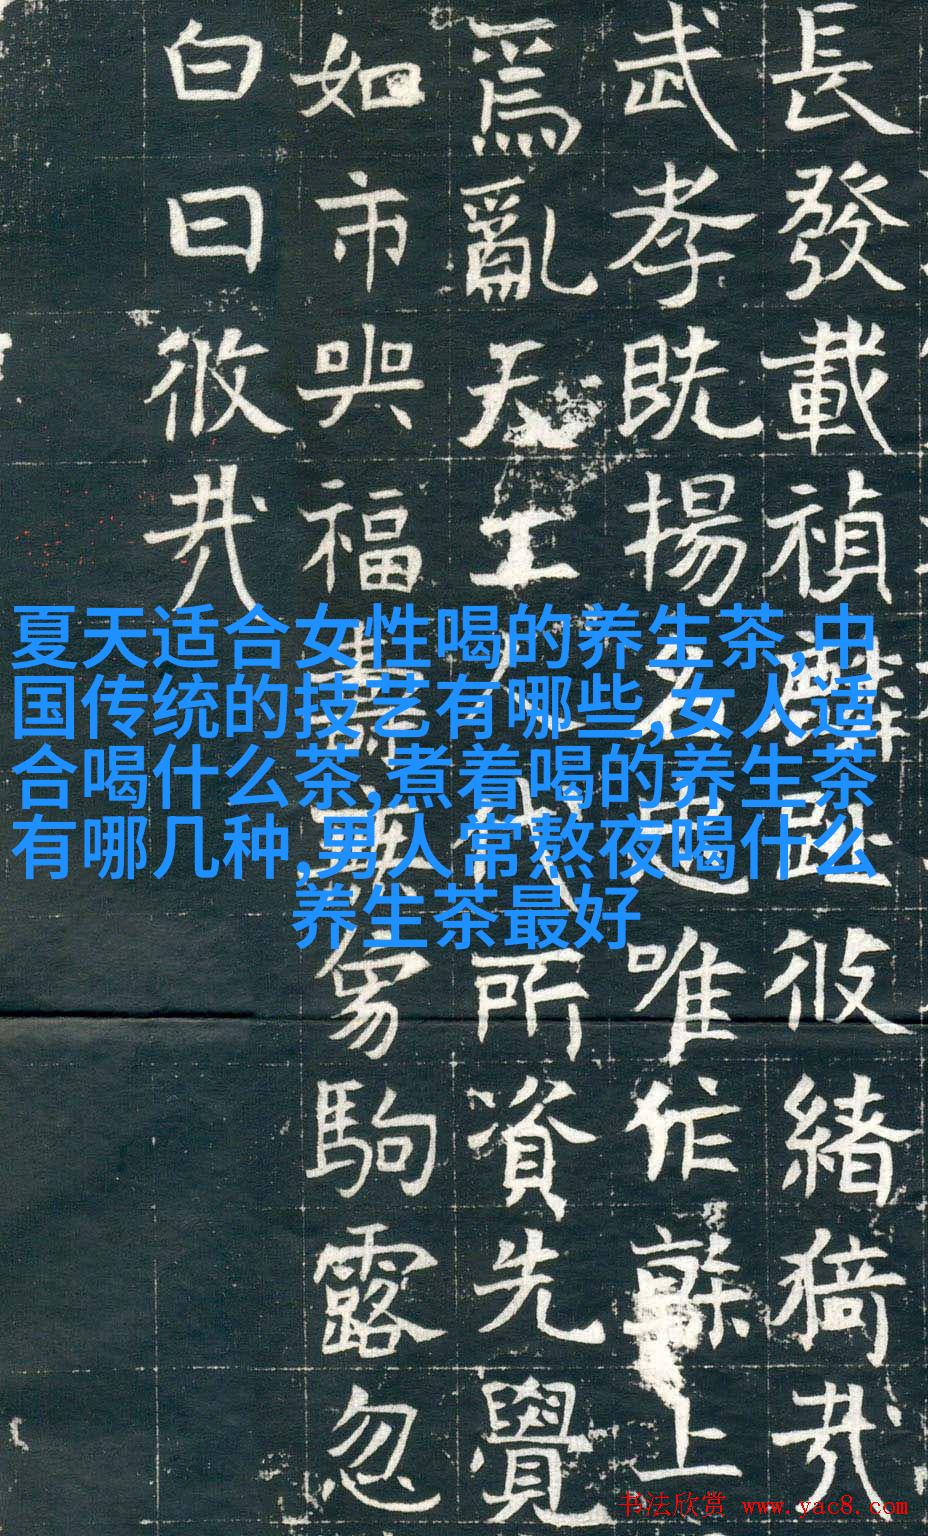 長發載禎彼緒猗哉
武孝既揚名唯作幹上
爲亂天工人代所資先覺
如市與福壽無駒露忽
白日攸哉
夏天适合女性喝的养生茶,中
国传统的技艺有哪些,女人适
合喝什么茶,煮着喝的养生茶
有哪几种,男人常熬夜喝什么
养生茶最好
书法欣赏 www.yac8.com